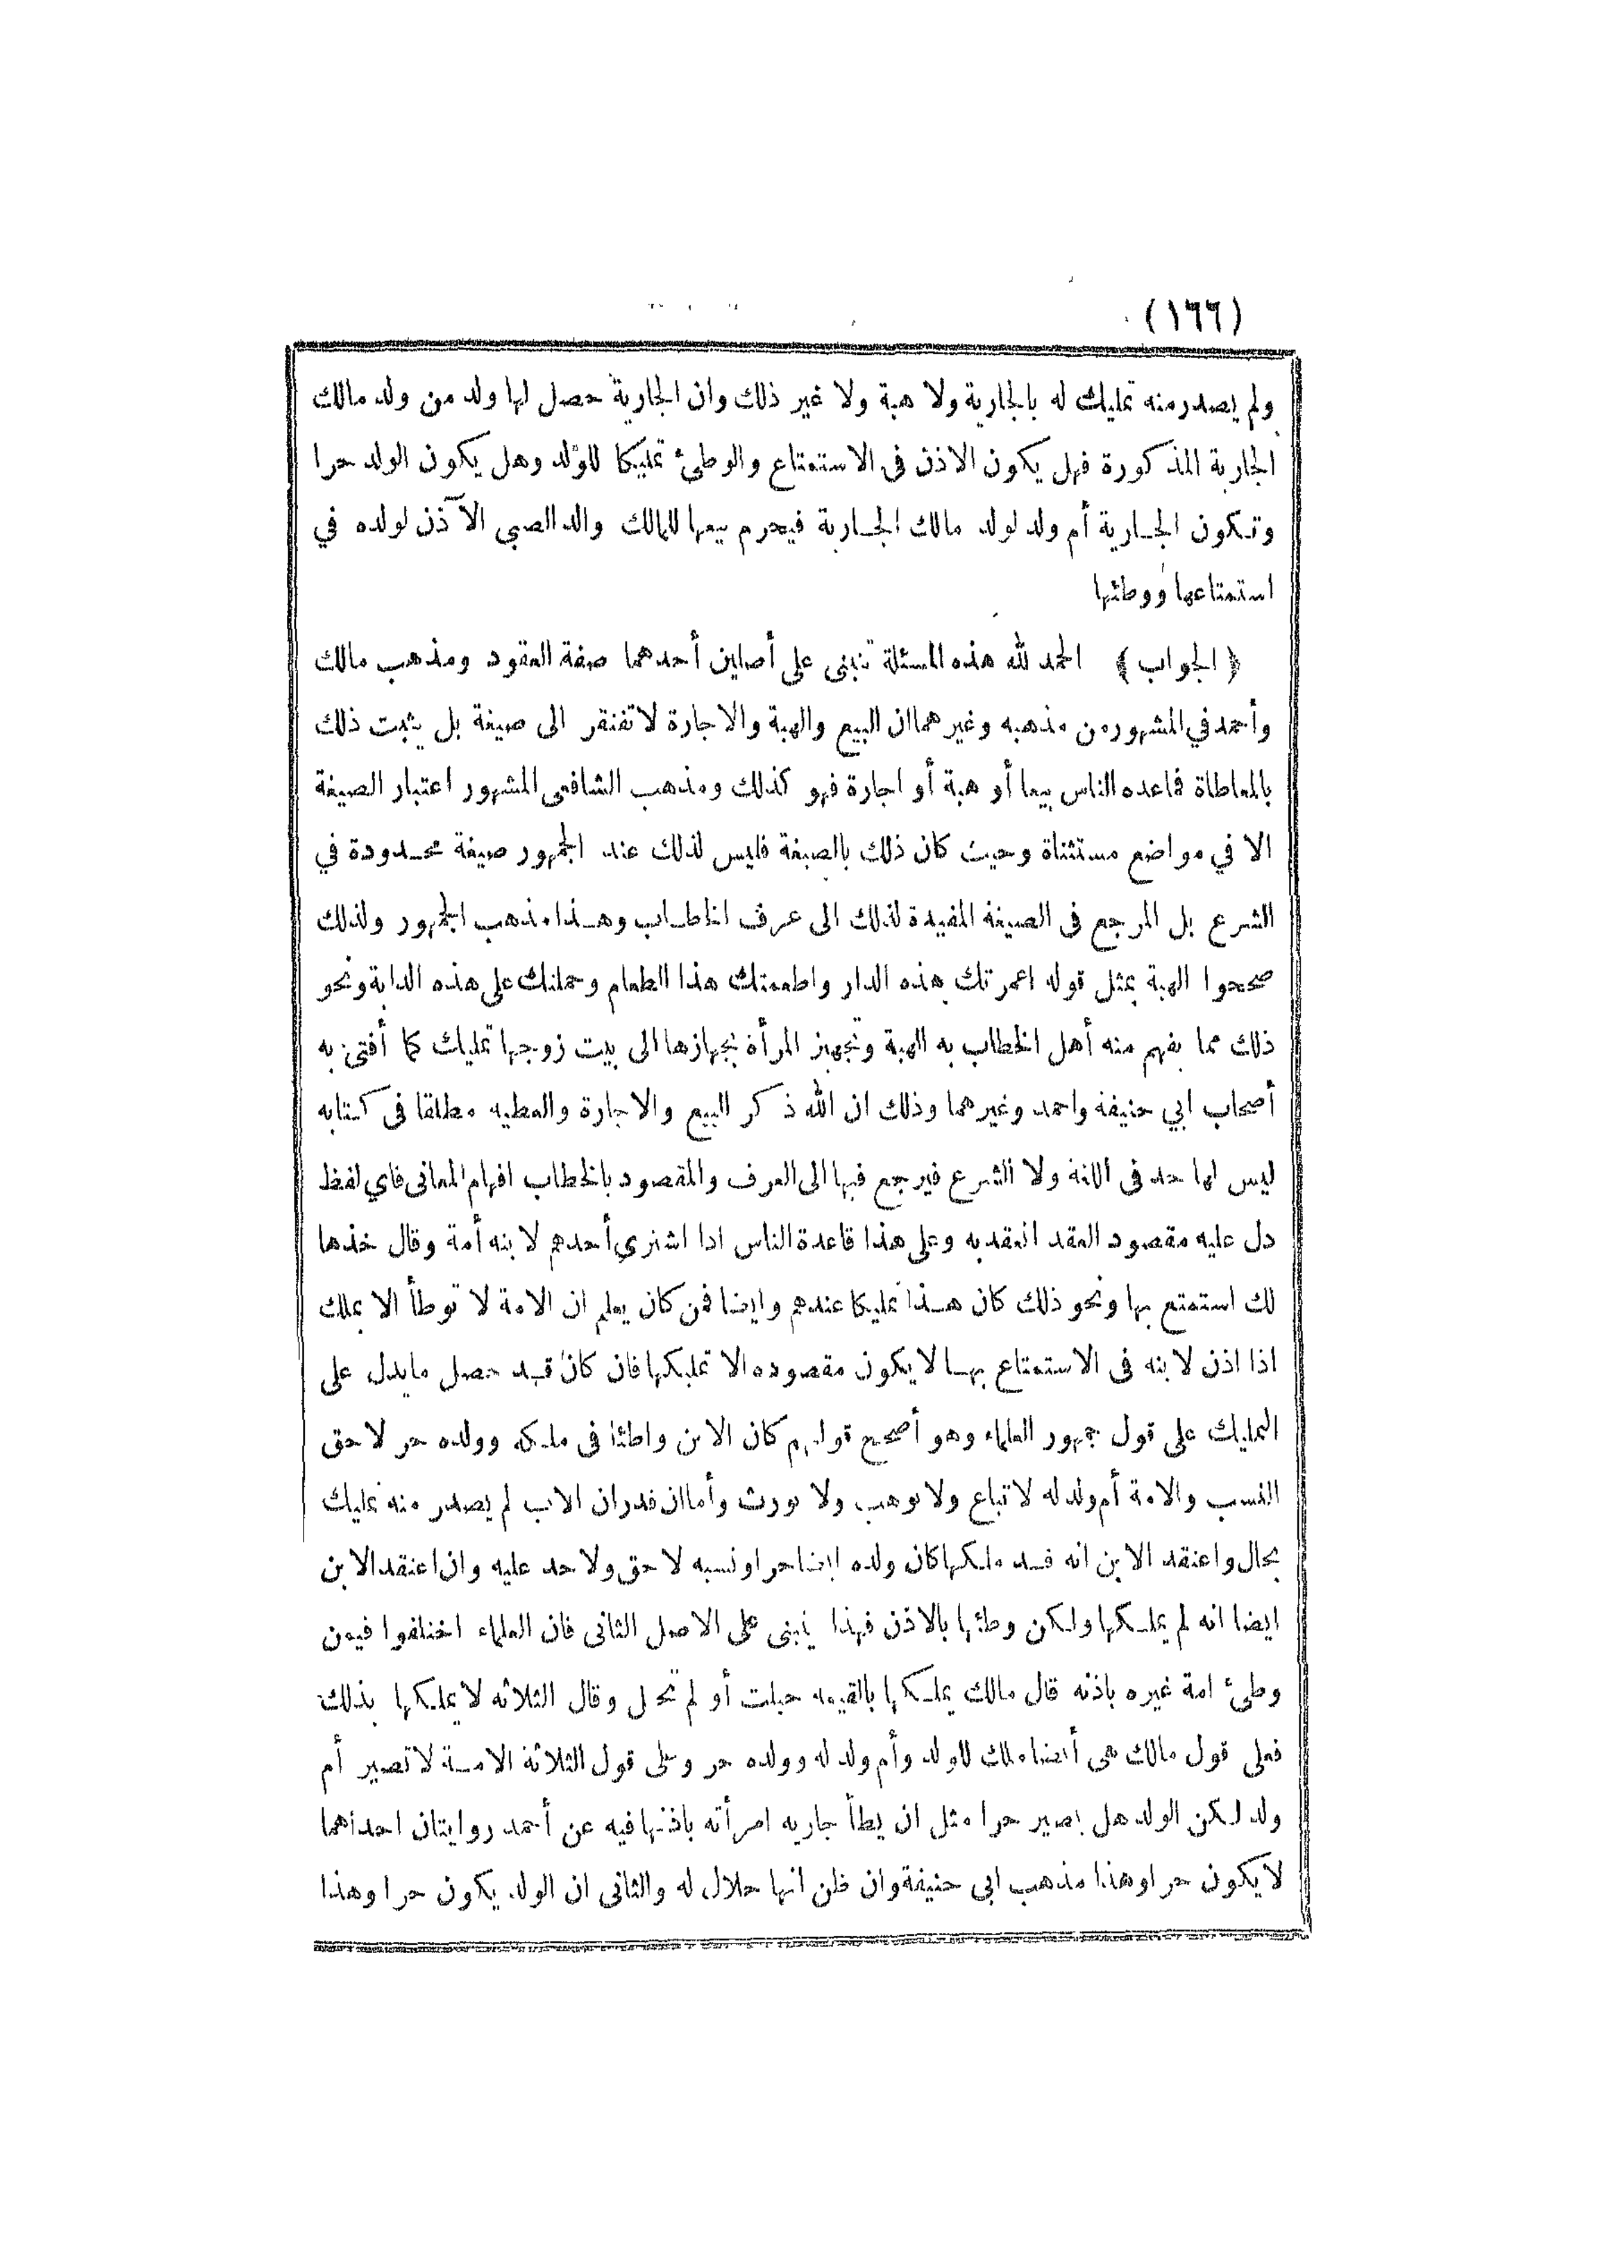 (١٦٦)
ولم يصدر منه تمليك له بالجارية ولا هبة ولا غير ذلك وان الجارية حصل لها ولد من ولد مالك
الجارية المذكورة فهل يكون الاذن في الاستمتاع والوطئ تمليكا للولد وهل يكون الولد حرا
وتكون الجارية أم ولد لولد مالك الجارية فيحرم بيعها للمالك والد الصبي الآذن لولده في
استمتاعها ووطئها
﴿ الجواب ﴾ الحمد لله هذه المسئلة تنبني على أصلين أحدهما صفة العقود ومذهب مالك
وأحمد في المشهور من مذهبه وغيرهما ان البيع والهبة والاجارة لا تفتقر الى صيغة بل يثبت ذلك
بالمعاطاة فما عده الناس بيعا أو هبة أو اجارة فهو كذلك ومذهب الشافعي المشهور اعتبار الصيغة
الا في مواضع مستثناة وحيث كان ذلك بالصيغة فليس لذلك عند الجمهور صيغة محدودة في
الشرع بل المرجع في الصيغة المفيدة لذلك الى عرف الخاطاب وهذا مذهب الجمهور ولذلك
صححوا الهبة بمثل قوله اعمرتك هذه الدار واطعمتك هذا الطعام وحملتك على هذه الدابة ونحو
ذلك مما يفهم منه أهل الخطاب به الهبة وتجهيز المرأة بجهازها الى بيت زوجها تمليك كما أفتى به
أصحاب ابي حنيفة واحمد وغيرهما وذلك ان الله ذكر البيع والاجارة والعطيه مطلقا في كتابه
ليس لها حد في اللغة ولا الشرع فيرجع فيها الى العرف والمقصود بالخطاب افهام المعاني فاي لفظ
دل عليه مقصود العقد انعقد به وعلى هذا قاعدة الناس اذا اشترى أحدهم لابنه أمة وقال خذها
لك استمتع بها ونحو ذلك كان هذا تمليكا عندهم وايضا فمن كان يعلم ان الامة لا توطأ الا بملك
اذا اذن لابنه في الاستمتاع بها لا يكون مقصوده الا تمليكها فان كان قد حصل ما يدل على
التمليك على قول جمهور العلماء وهو أصح قولهم كان الابن واطئا في ملكه وولده حر لاحق
النسب والامة أم ولد له لا تباع ولا توهب ولا تورث وأما ان قدر ان الاب لم يصدر منه تمليك
بحال واعتقد الابن انه قد ملكها كان ولده ايضا حرا ونسبه لاحق ولا حد عليه وان اعتقد الابن
ايضا انه لم يملكها ولكن وطئها بالاذن فهذا ينبني على الاصل الثاني فان العلماء اختلفوا فيمن
وطئ امة غيره باذنه قال مالك يملكها بالقيمه حبلت أو لم تحبل وقال الثلاثه لا يملكها بذلك
فعلى قول مالك هي أيضا ملك للولد وأم ولد له وولده حر وعلى قول الثلاثة الامة لا تصير أم
ولد لكن الولد هل يصير حرا مثل ان يطأ جاريه امرأته باذنها فيه عن أحمد روايتان احداهما
لا يكون حرا وهذا مذهب ابي حنيفة وان ظن انها حلال له والثاني ان الولد يكون حرا وهذا